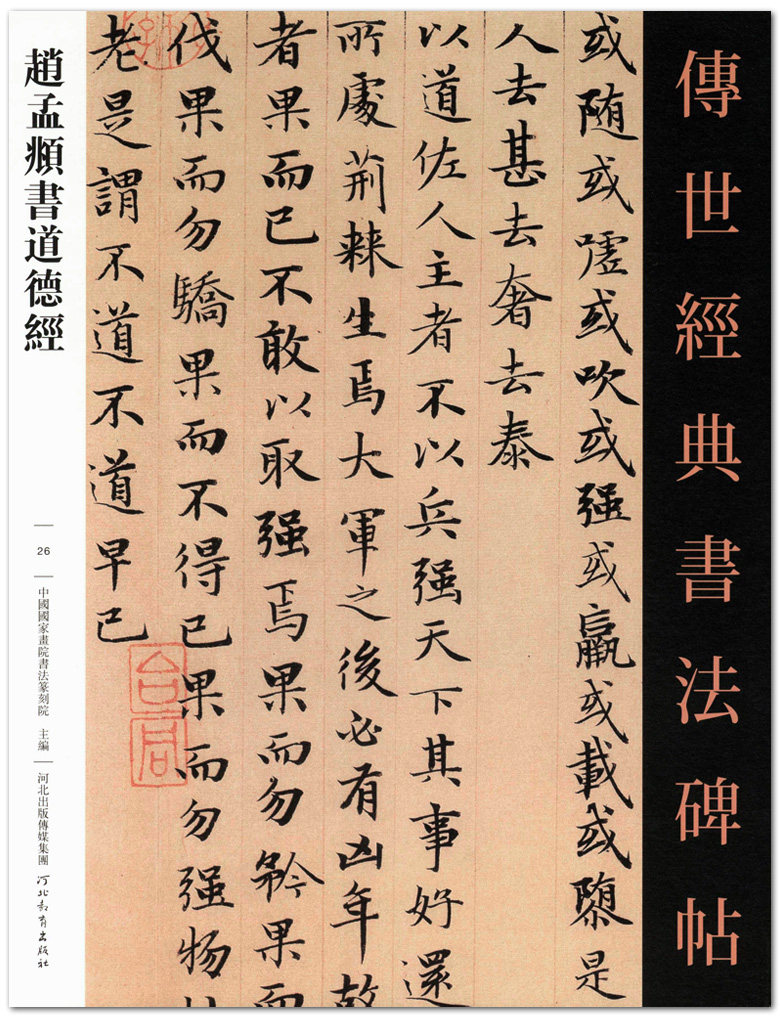 傳世經典書法碑帖
或随或嘘或吹或强或羸或載或隳是
人去甚去奢去泰
以道佐人主者不以兵强天下其事好還
所處荊棘生焉大軍之後必有凶年故
者果而已不敢以取强焉果而勿矜果而
伐果而勿驕果而不得已果而勿强物
老是謂不道不道早已
趙孟頫書道德經
26
中國國家畫院書法篆刻院 主編
河北出版傳媒集團
河北教育出版社